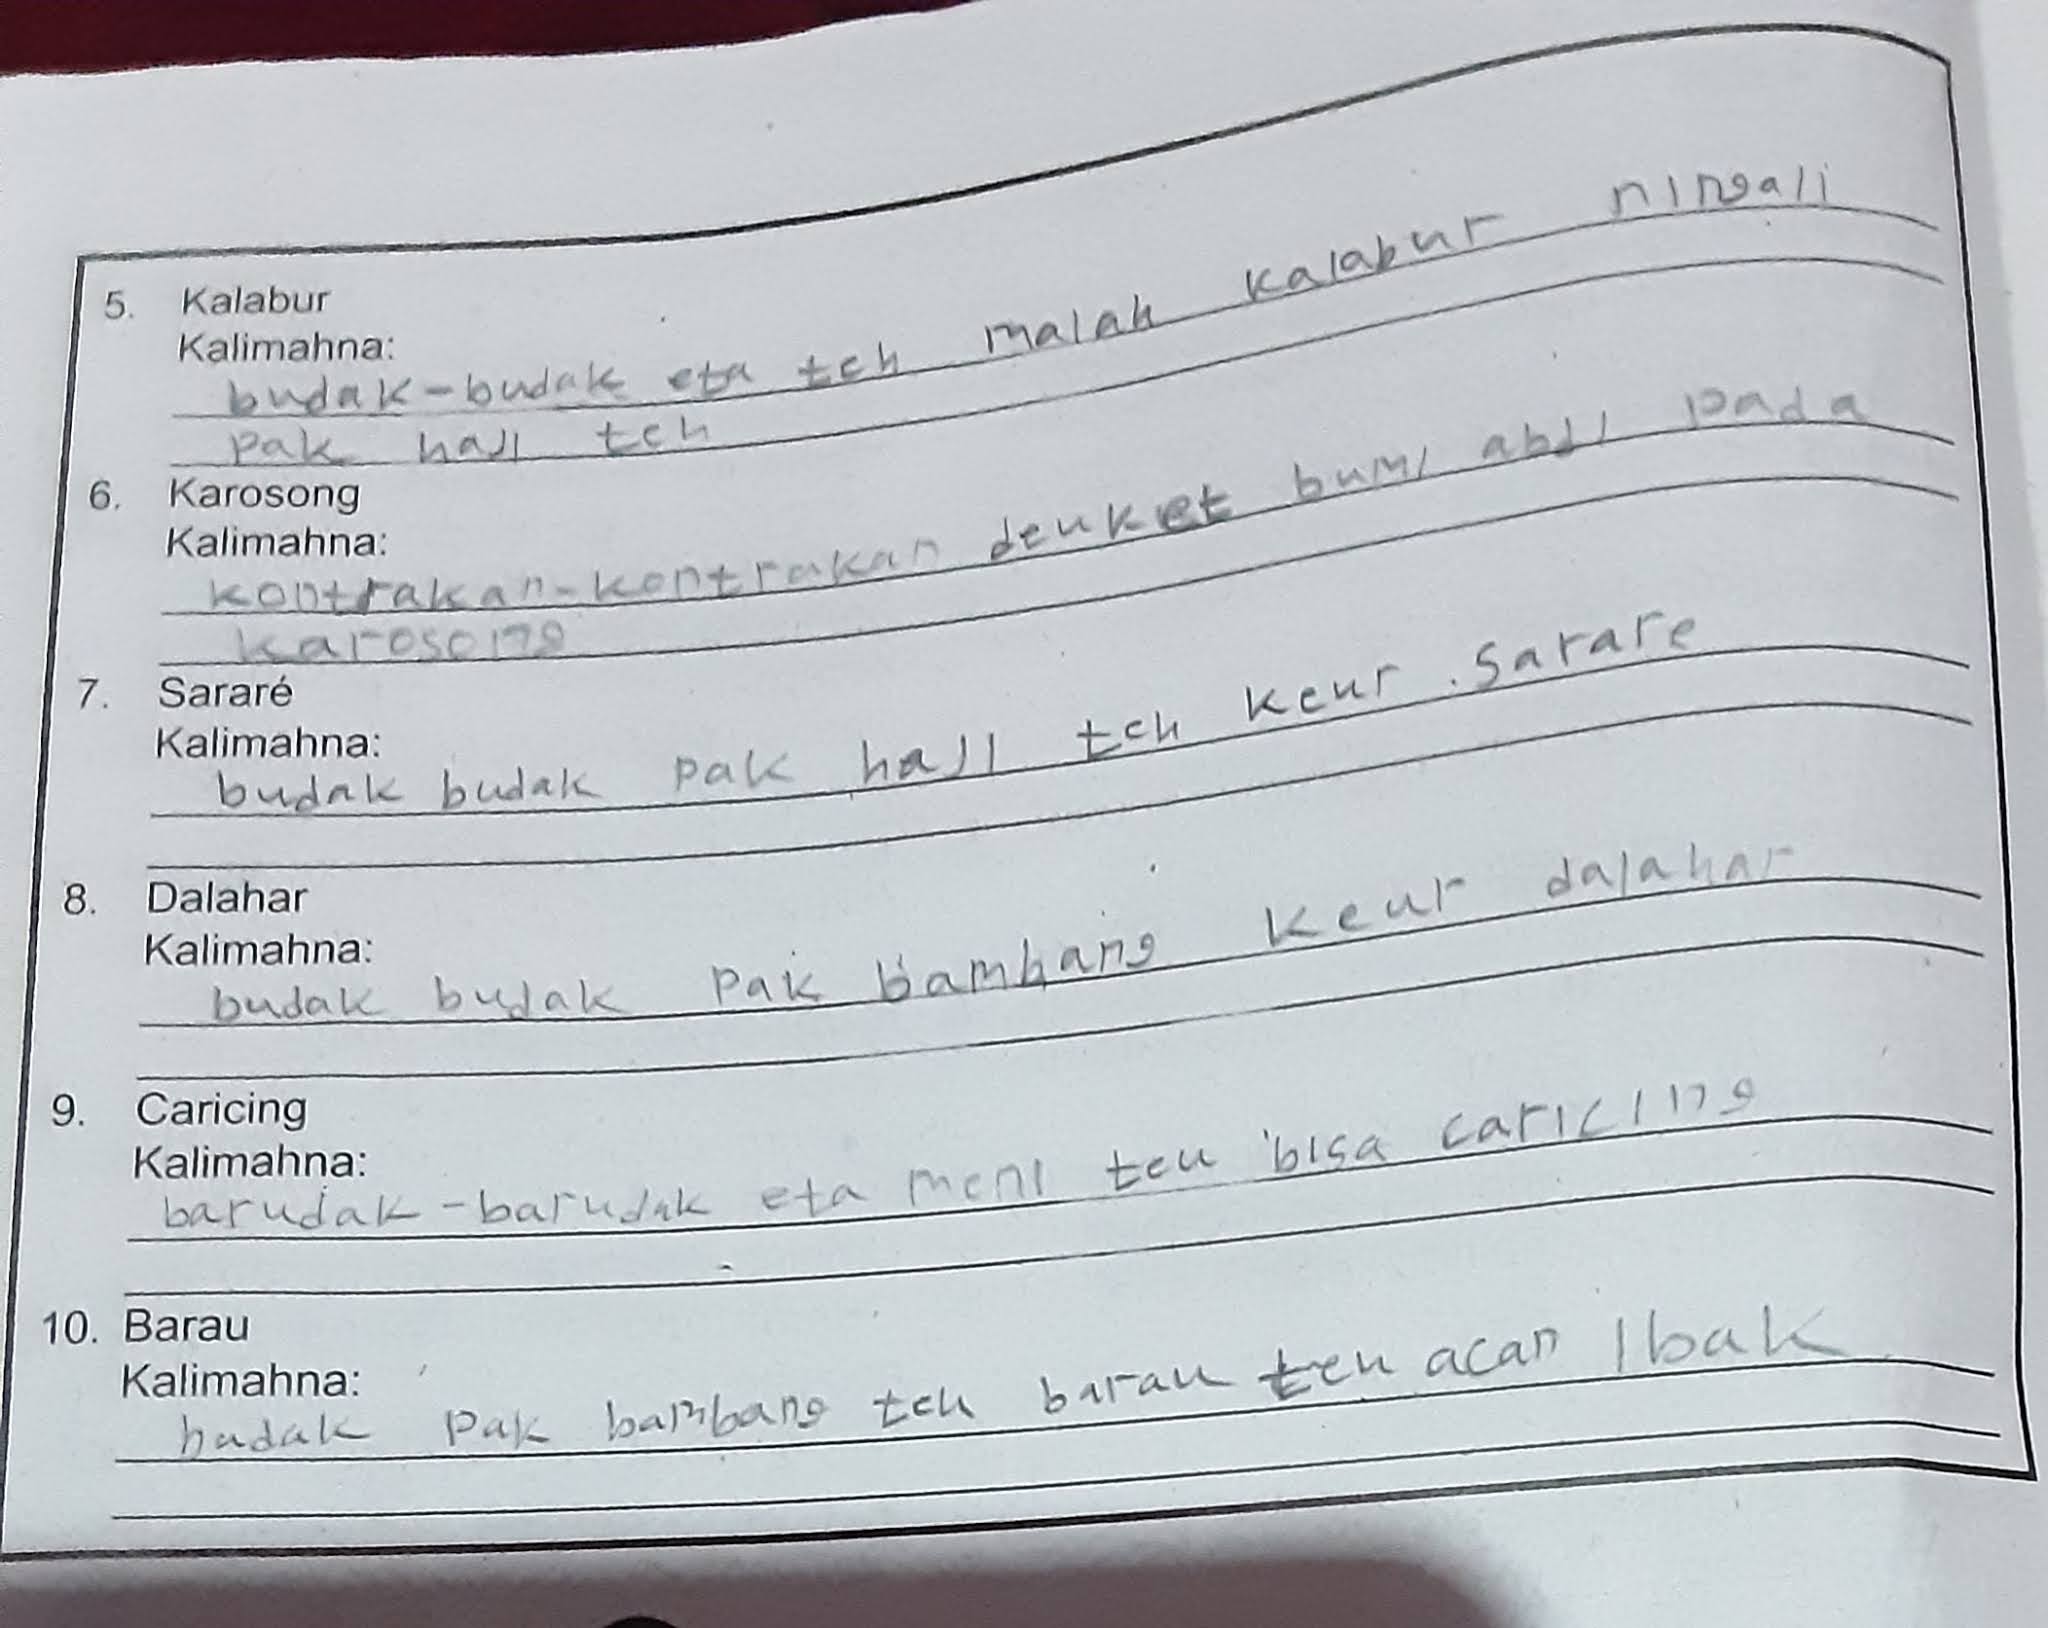 5. Kalabur
Kalimahna:
budak-budak eta teh malah kalabur ningali
pak haji teh
6. Karosong
Kalimahna:
kontrakan-kontrakan deuket bumi abdi pada
karosong
7. Sararé
Kalimahna:
budak budak pak haji teh keur sarare
8. Dalahar
Kalimahna:
budak budak pak bambang keur dalahar
9. Caricing
Kalimahna:
barudak-barudak eta meni teu bisa caricing
10. Barau
Kalimahna:
budak pak bambang teh barau teu acan ibak